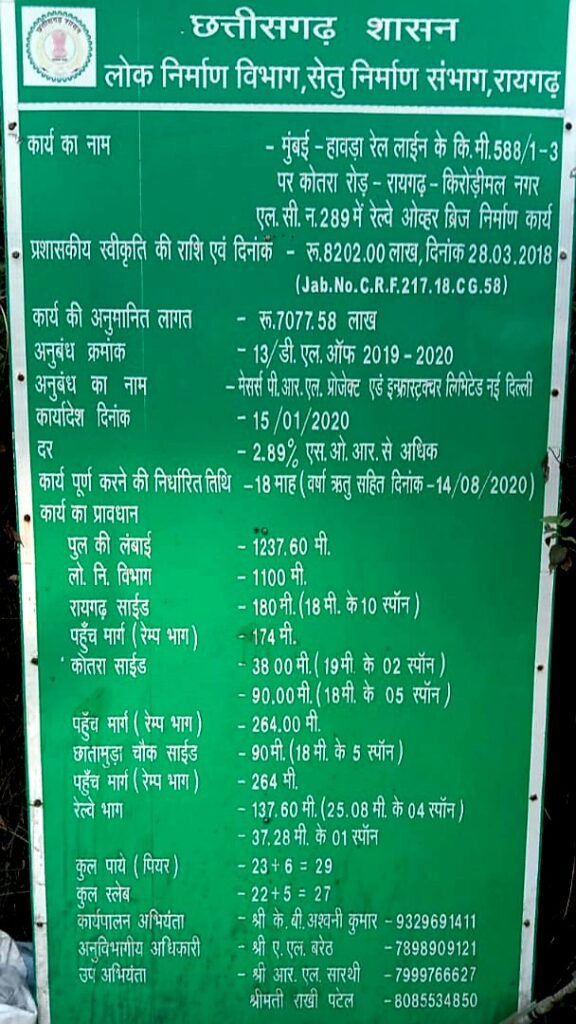 छत्तीसगढ़ शासन
लोक निर्माण विभाग,सेतु निर्माण संभाग,रायगढ़
कार्य का नाम - मुंबई - हावड़ा रेल लाईन के कि.मी.588/1-3
पर कोतरा रोड़ - रायगढ़ - किरोड़ीमल नगर
एल.सी.न.289 में रेल्वे ओव्हर ब्रिज निर्माण कार्य
प्रशासकीय स्वीकृति की राशि एवं दिनांक - रू.8202.00 लाख,दिनांक 28.03.2018
(Jab.No.C.R.F.217.18.CG.58)
कार्य की अनुमानित लागत - रू.7077.58 लाख
अनुबंध क्रमांक - 13/डी.एल.ऑफ 2019-2020
अनुबंध का नाम - मेसर्स पी.आर.एल.प्रोजेक्ट एडं इन्फ्रास्ट्रक्चर लिमिटेड नई दिल्ली
कार्यादेश दिनांक - 15/01/2020
दर - 2.89% एस.ओ.आर.से अधिक
कार्य पूर्ण करने की निर्धारित तिथि -18 माह(वर्षा ऋतु सहित दिनांक-14/08/2020)
कार्य का प्रावधान
पुल की लंबाई - 1237.60 मी.
लो.नि.विभाग - 1100 मी.
रायगढ़ साईड - 180 मी.(18 मी.के 10 स्पॉन)
पहुँच मार्ग(रेम्प भाग) - 174 मी.
कोतरा साईड - 38 00 मी.(19मी.के 02 स्पॉन)
- 90.00 मी.(18मी.के 05 स्पॉन)
पहुँच मार्ग(रेम्प भाग) - 264.00 मी.
छातामुड़ा चौक साईड - 90मी.(18 मी.के 5 स्पॉन)
पहुँच मार्ग(रेम्प भाग) - 264 मी.
रेल्वे भाग - 137.60 मी.(25.08 मी.के 04 स्पॉन)
- 37.28 मी.के 01 स्पॉन
कुल पाये(पियर) - 23+6 = 29
कुल स्लेब - 22+5 = 27
कार्यपालन अभियंता - श्री के.बी.अश्वनी कुमार - 9329691411
अनुविभागीय अधिकारी - श्री ए.एल.बरेठ - 7898909121
उप अभियंता - श्री आर.एल.सारथी - 7999766627
श्रीमती राखी पटेल - 8085534850